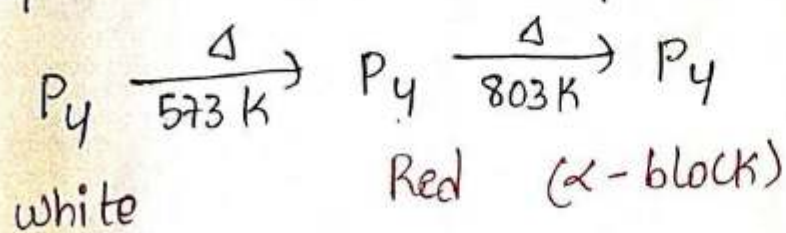 P4 Δ/573 K → P4 Δ/803 K → P4
white Red (α-block)